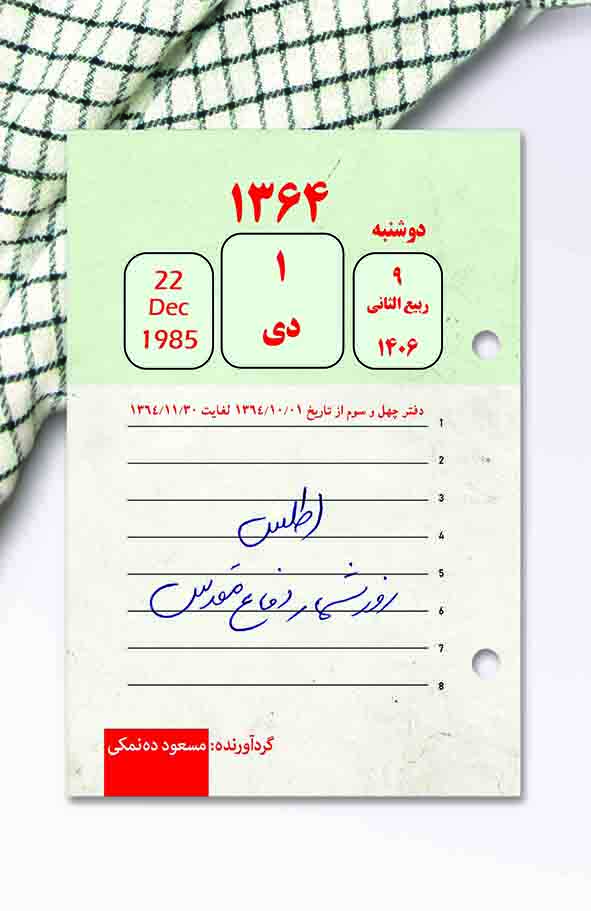 ۱۳۶۴
دوشنبه
۹
ربیع الثانی
۱۴۰۶
۱
دی
22
Dec
1985
دفتر چهل و سوم از تاریخ ۱۳۶۴/۱۰/۰۱ لغایت ۱۳۶۴/۱۱/۳۰
1
2
3
اطلس
4
5
روزشمار دفاع مقدس
6
7
8
گردآورنده: مسعود ده‌نمکی